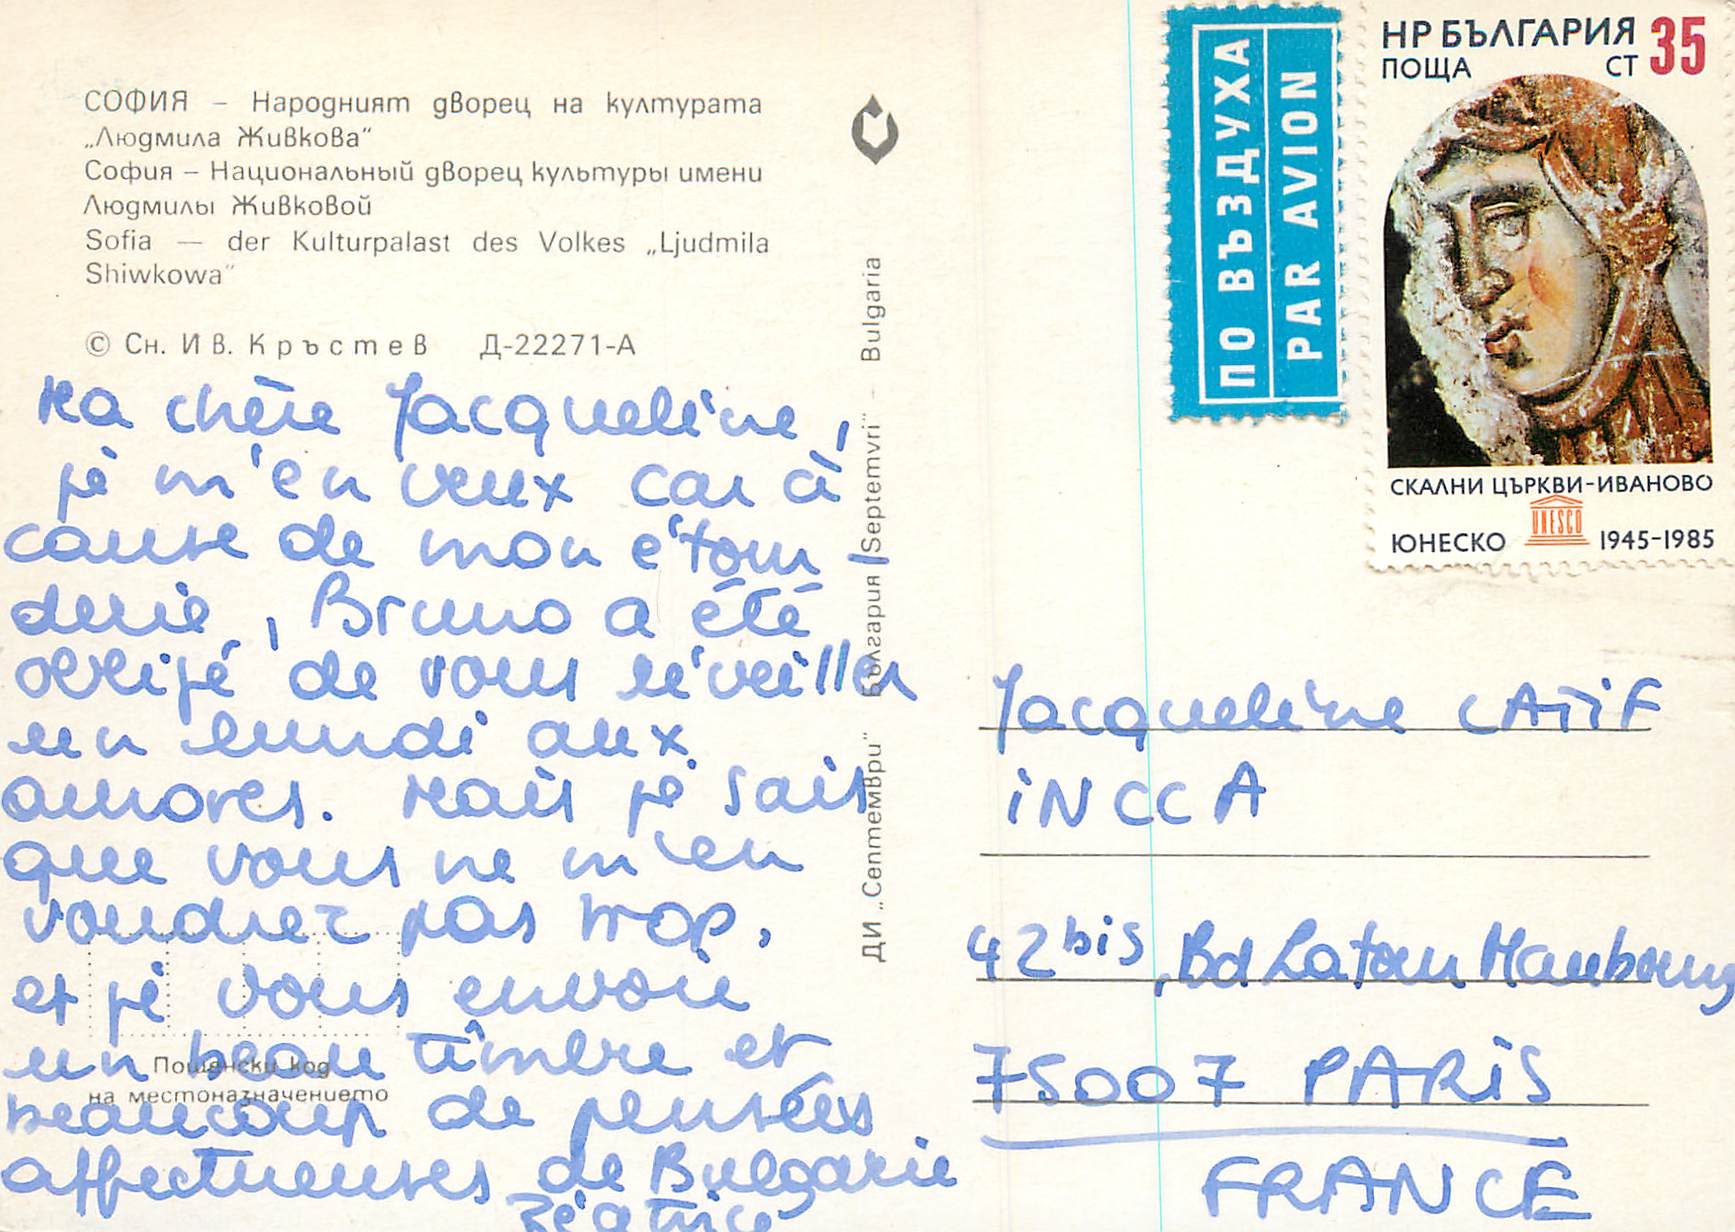 СОФИЯ – Народният дворец на културата
„Людмила Живкова“
София – Национальный дворец культуры имени
Людмилы Живковой
Sofia — der Kulturpalast des Volkes „Ljudmila
Shiwkowa“
© Сн. Ив. Кръстев Д-22271-А
Ma chère Jacqueline,
je m'en veux car à
cause de mon étour-
derie, Bruno a été
obligé de vous réveiller
un lundi aux
aurores. Mais je sais
que vous ne m'en
voudrez pas trop,
et je vous envoie
un beau timbre et
beaucoup de pensées
affectueuses de Bulgarie
Béatrice
Пощенски код
на местоназначението
ДИ „Септември“ България „Septemvri“ – Bulgaria
ПО ВЪЗДУХА
PAR AVION
НР БЪЛГАРИЯ 35
ПОЩА СТ
СКАЛНИ ЦЪРКВИ-ИВАНОВО
UNESCO
ЮНЕСКО 1945-1985
Jacqueline CATIF
INCCA
42 bis, Bd Latour Maubourg
75007 PARIS
FRANCE